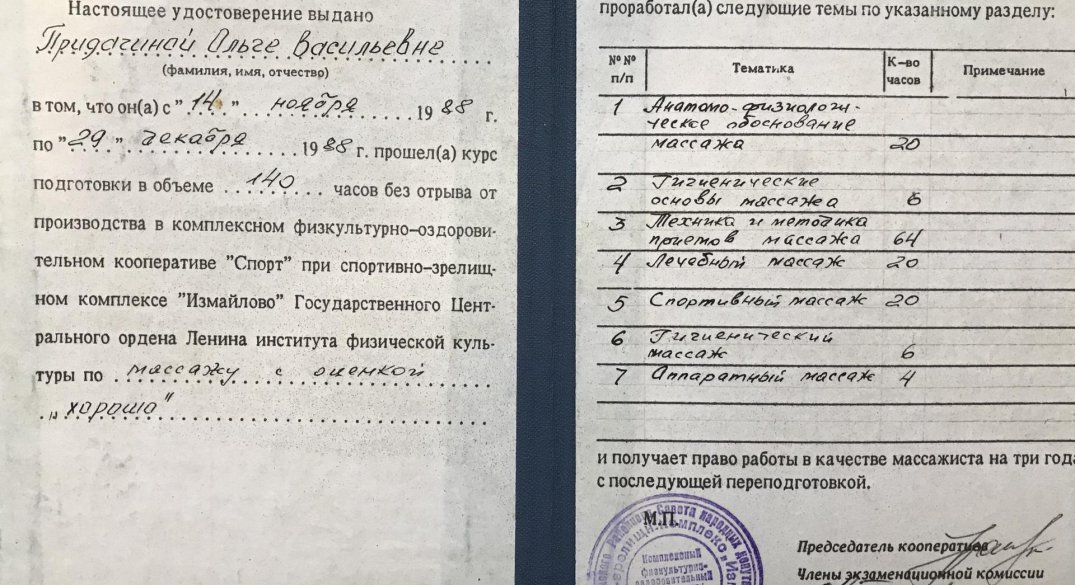 Настоящее удостоверение выдано
Придачиной Ольге Васильевне
(фамилия, имя, отчество)
в том, что он(а) с "14" ноября 1988 г.
по "29" декабря 1988 г. прошел(а) курс
подготовки в объеме 140 часов без отрыва от
производства в комплексном физкультурно-оздорови-
тельном кооперативе "Спорт" при спортивно-зрелищ-
ном комплексе "Измайлово" Государственного Цент-
рального ордена Ленина института физической куль-
туры по массажу с оценкой
"хорошо"
проработал(а) следующие темы по указанному разделу:
№№ п/п Тематика К-во часов Примечание
1 Анатомо-физиологи-
ческое обоснование
массажа 20
2 Гигиенические
основы массажа 6
3 Техника и методика
приемов массажа 64
4 Лечебный массаж 20
5 Спортивный массаж 20
6 Гигиенический
массаж 6
7 Аппаратный массаж 4
и получает право работы в качестве массажиста на три года
с последующей переподготовкой.
М.П.
Совета народных депут
Комплексный
физкультурно-
оздоровительный
Председатель кооператива
Члены экзаменационной комиссии